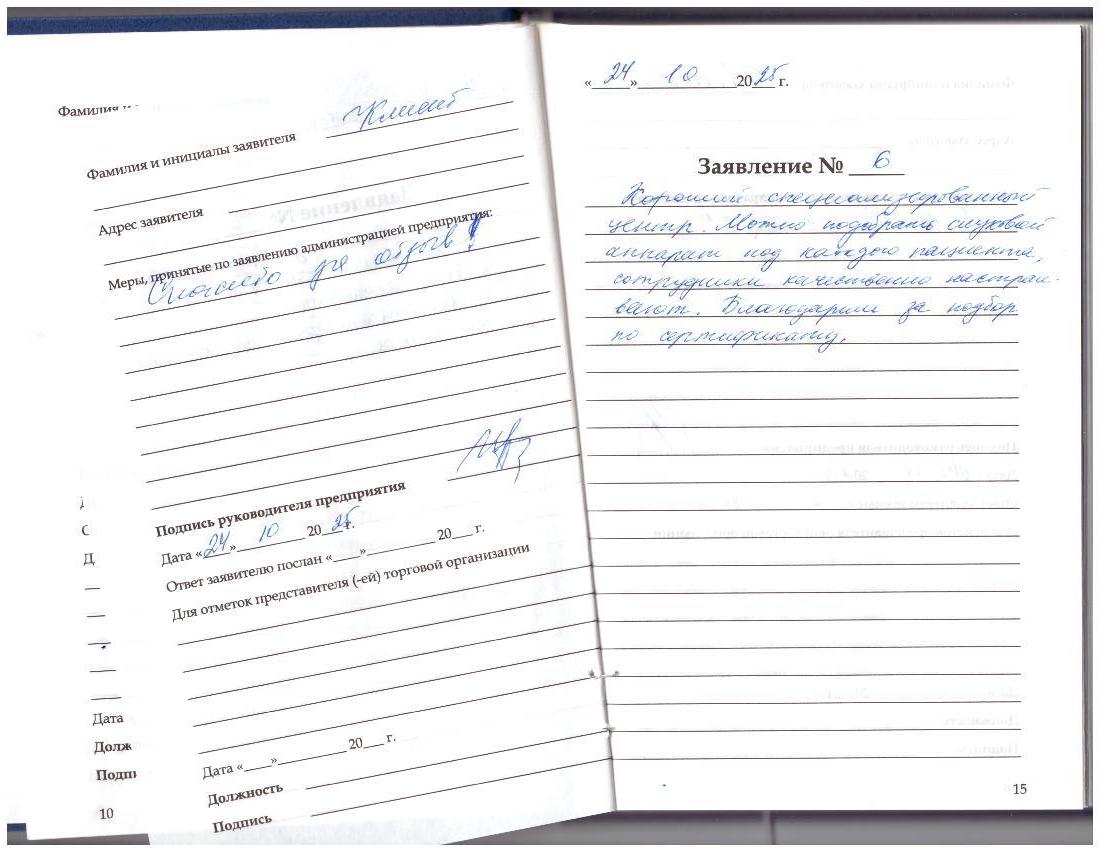 Фамилия и
Фамилия и инициалы заявителя Клиент
Адрес заявителя
Меры, принятые по заявлению администрацией предприятия:
Спасибо за отзыв!
Подпись руководителя предприятия
Дата «24» 10 2025 г.
Ответ заявителю послан «___»________ 20___ г.
Для отметок представителя (-ей) торговой организации
Дата «___»________ 20___ г.
Должность
Подпись
Д
Дата
Долж
Подпи
10
«24» 10 2025 г.
Заявление № 6
Хороший специализированный
центр. Можно подобрать слуховой
аппарат под каждого пациента,
сотрудники качественно настраи-
вают. Благодарим за подбор
по сертификату.
15